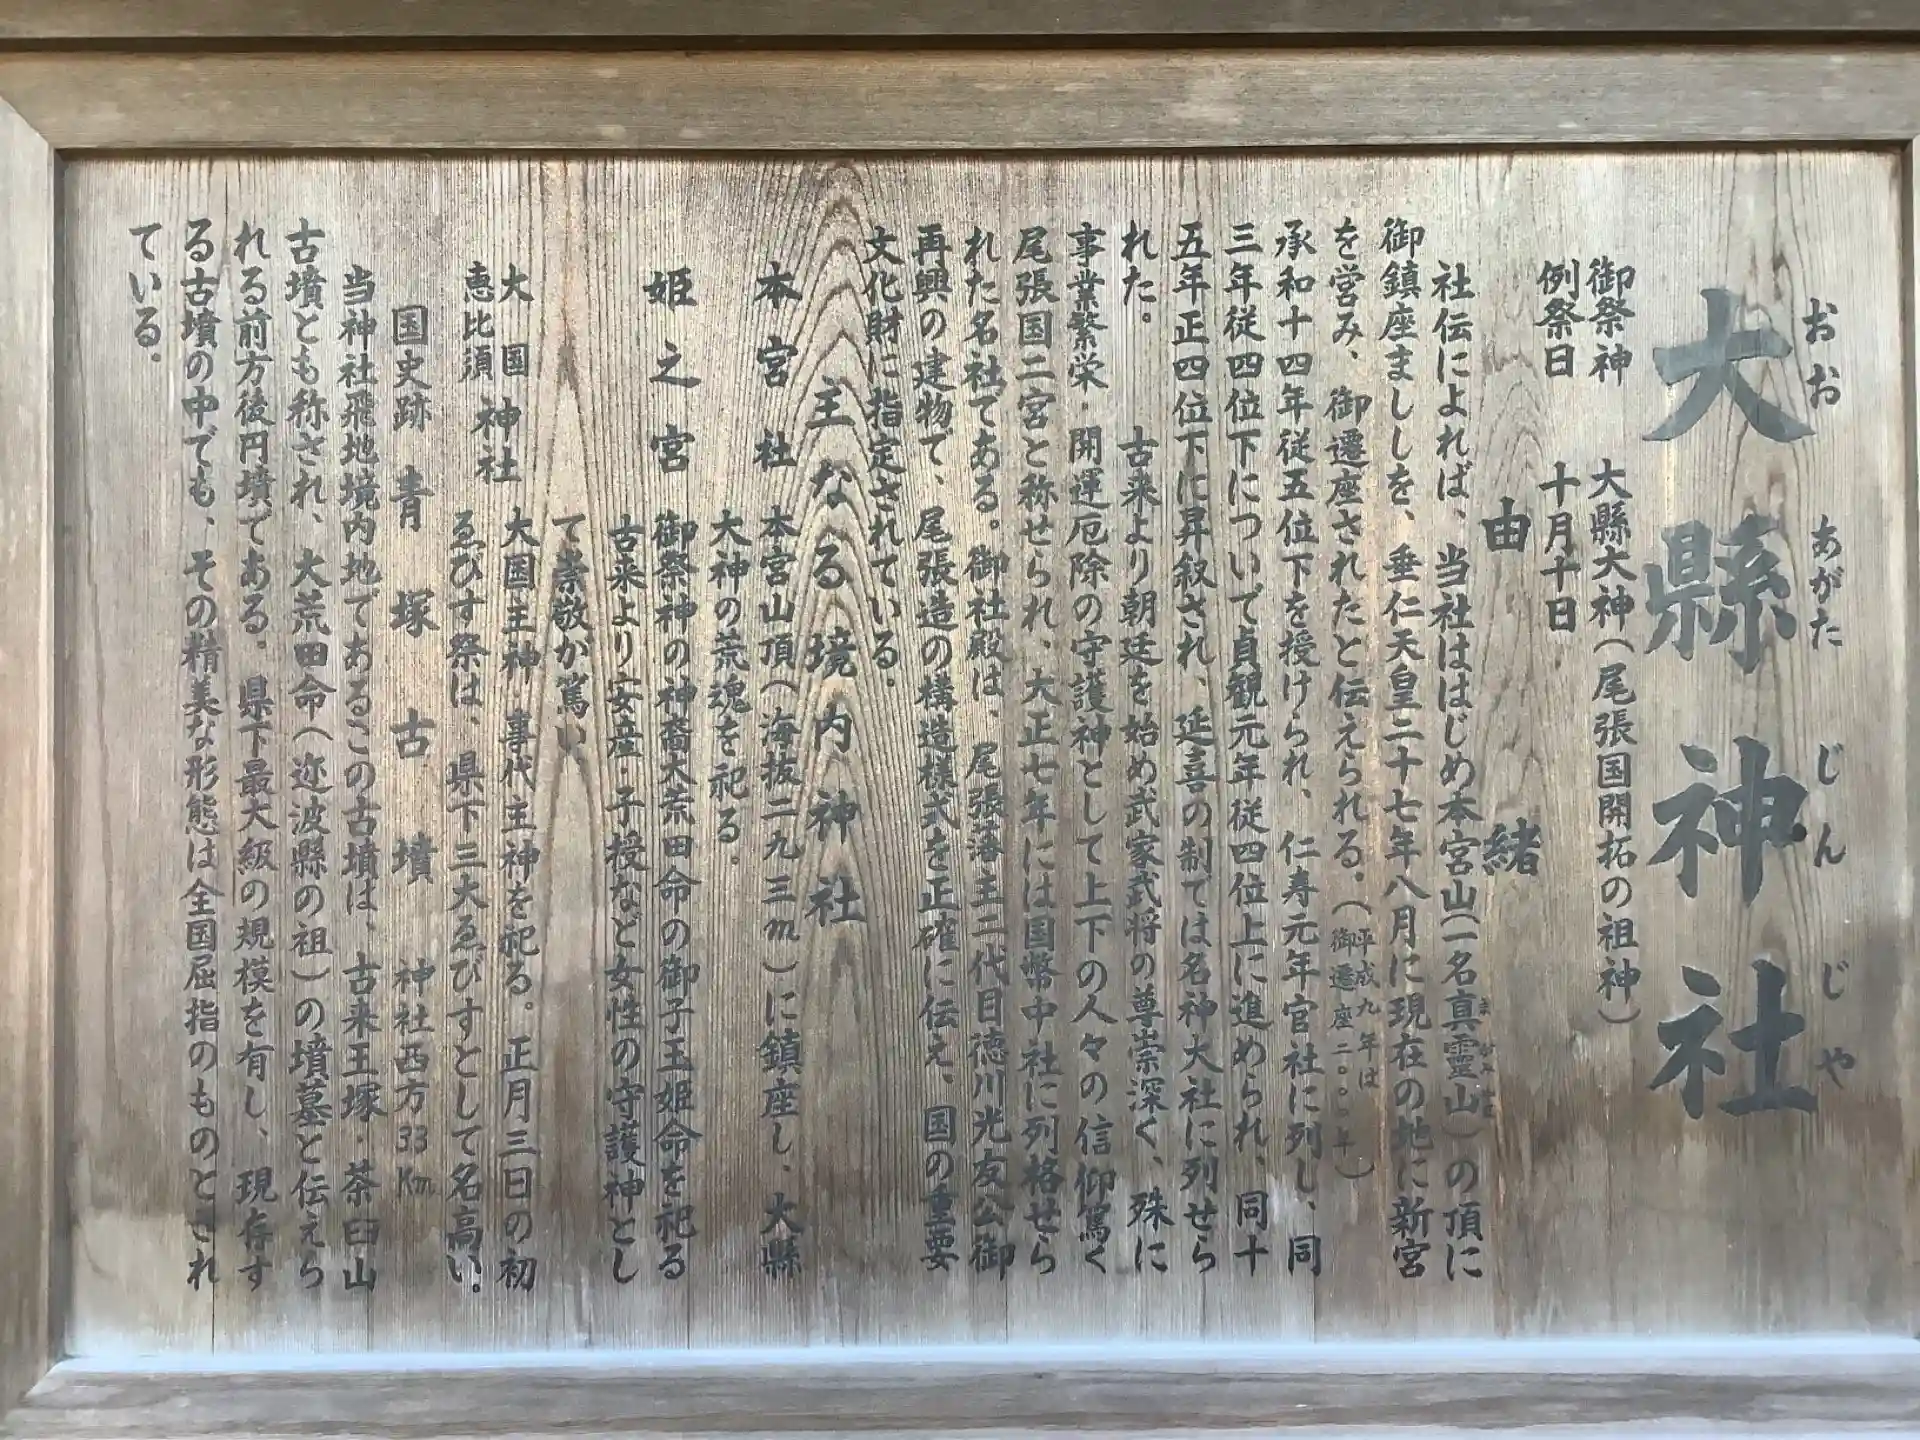 大縣神社
おお あがた じんじゃ
御祭神 大縣大神(尾張国開拓の祖神)
例祭日 十月十日
由緒
社伝によれば、当社ははじめ本宮山(一名真霊山)の頂に
御鎮座ましししを、垂仁天皇二十七年八月に現在の地に新宮
を営み、御遷座されたと伝えられる。(平成九年は御遷座二〇〇〇年)
承和十四年従五位下を授けられ、仁寿元年官社に列し、同
三年従四位下についで貞観元年従四位上に進められ、同十
五年正四位下に昇叙され、延喜の制では名神大社に列せら
れた。 古来より朝廷を始め武家武将の尊崇深く、殊に
事業繁栄・開運厄除の守護神として上下の人々の信仰篤く
尾張国二宮と称せられ、大正七年には国幣中社に列格せら
れた名社である。御社殿は、尾張藩主二代目徳川光友公御
再興の建物で、尾張造の構造様式を正確に伝え、国の重要
文化財に指定されている。
主なる境内神社
本宮社 本宮山頂(海抜二九三m)に鎮座し、大縣
大神の荒魂を祀る。
姫之宮 御祭神の神裔大荒田命の御子玉姫命を祀る
古来より安産・子授など女性の守護神とし
て崇敬が篤い
大国恵比須神社 大国主神・事代主神を祀る。正月三日の初
ゑびす祭は、県下三大ゑびすとして名高い。
国史跡 青塚古墳 神社西方33Km
当神社飛地境内地であるこの古墳は、古来王塚・茶臼山
古墳とも称され、大荒田命(迩波縣の祖)の墳墓と伝えら
れる前方後円墳である。県下最大級の規模を有し、現存す
る古墳の中でも、その精美な形態は全国屈指のものとされ
ている。